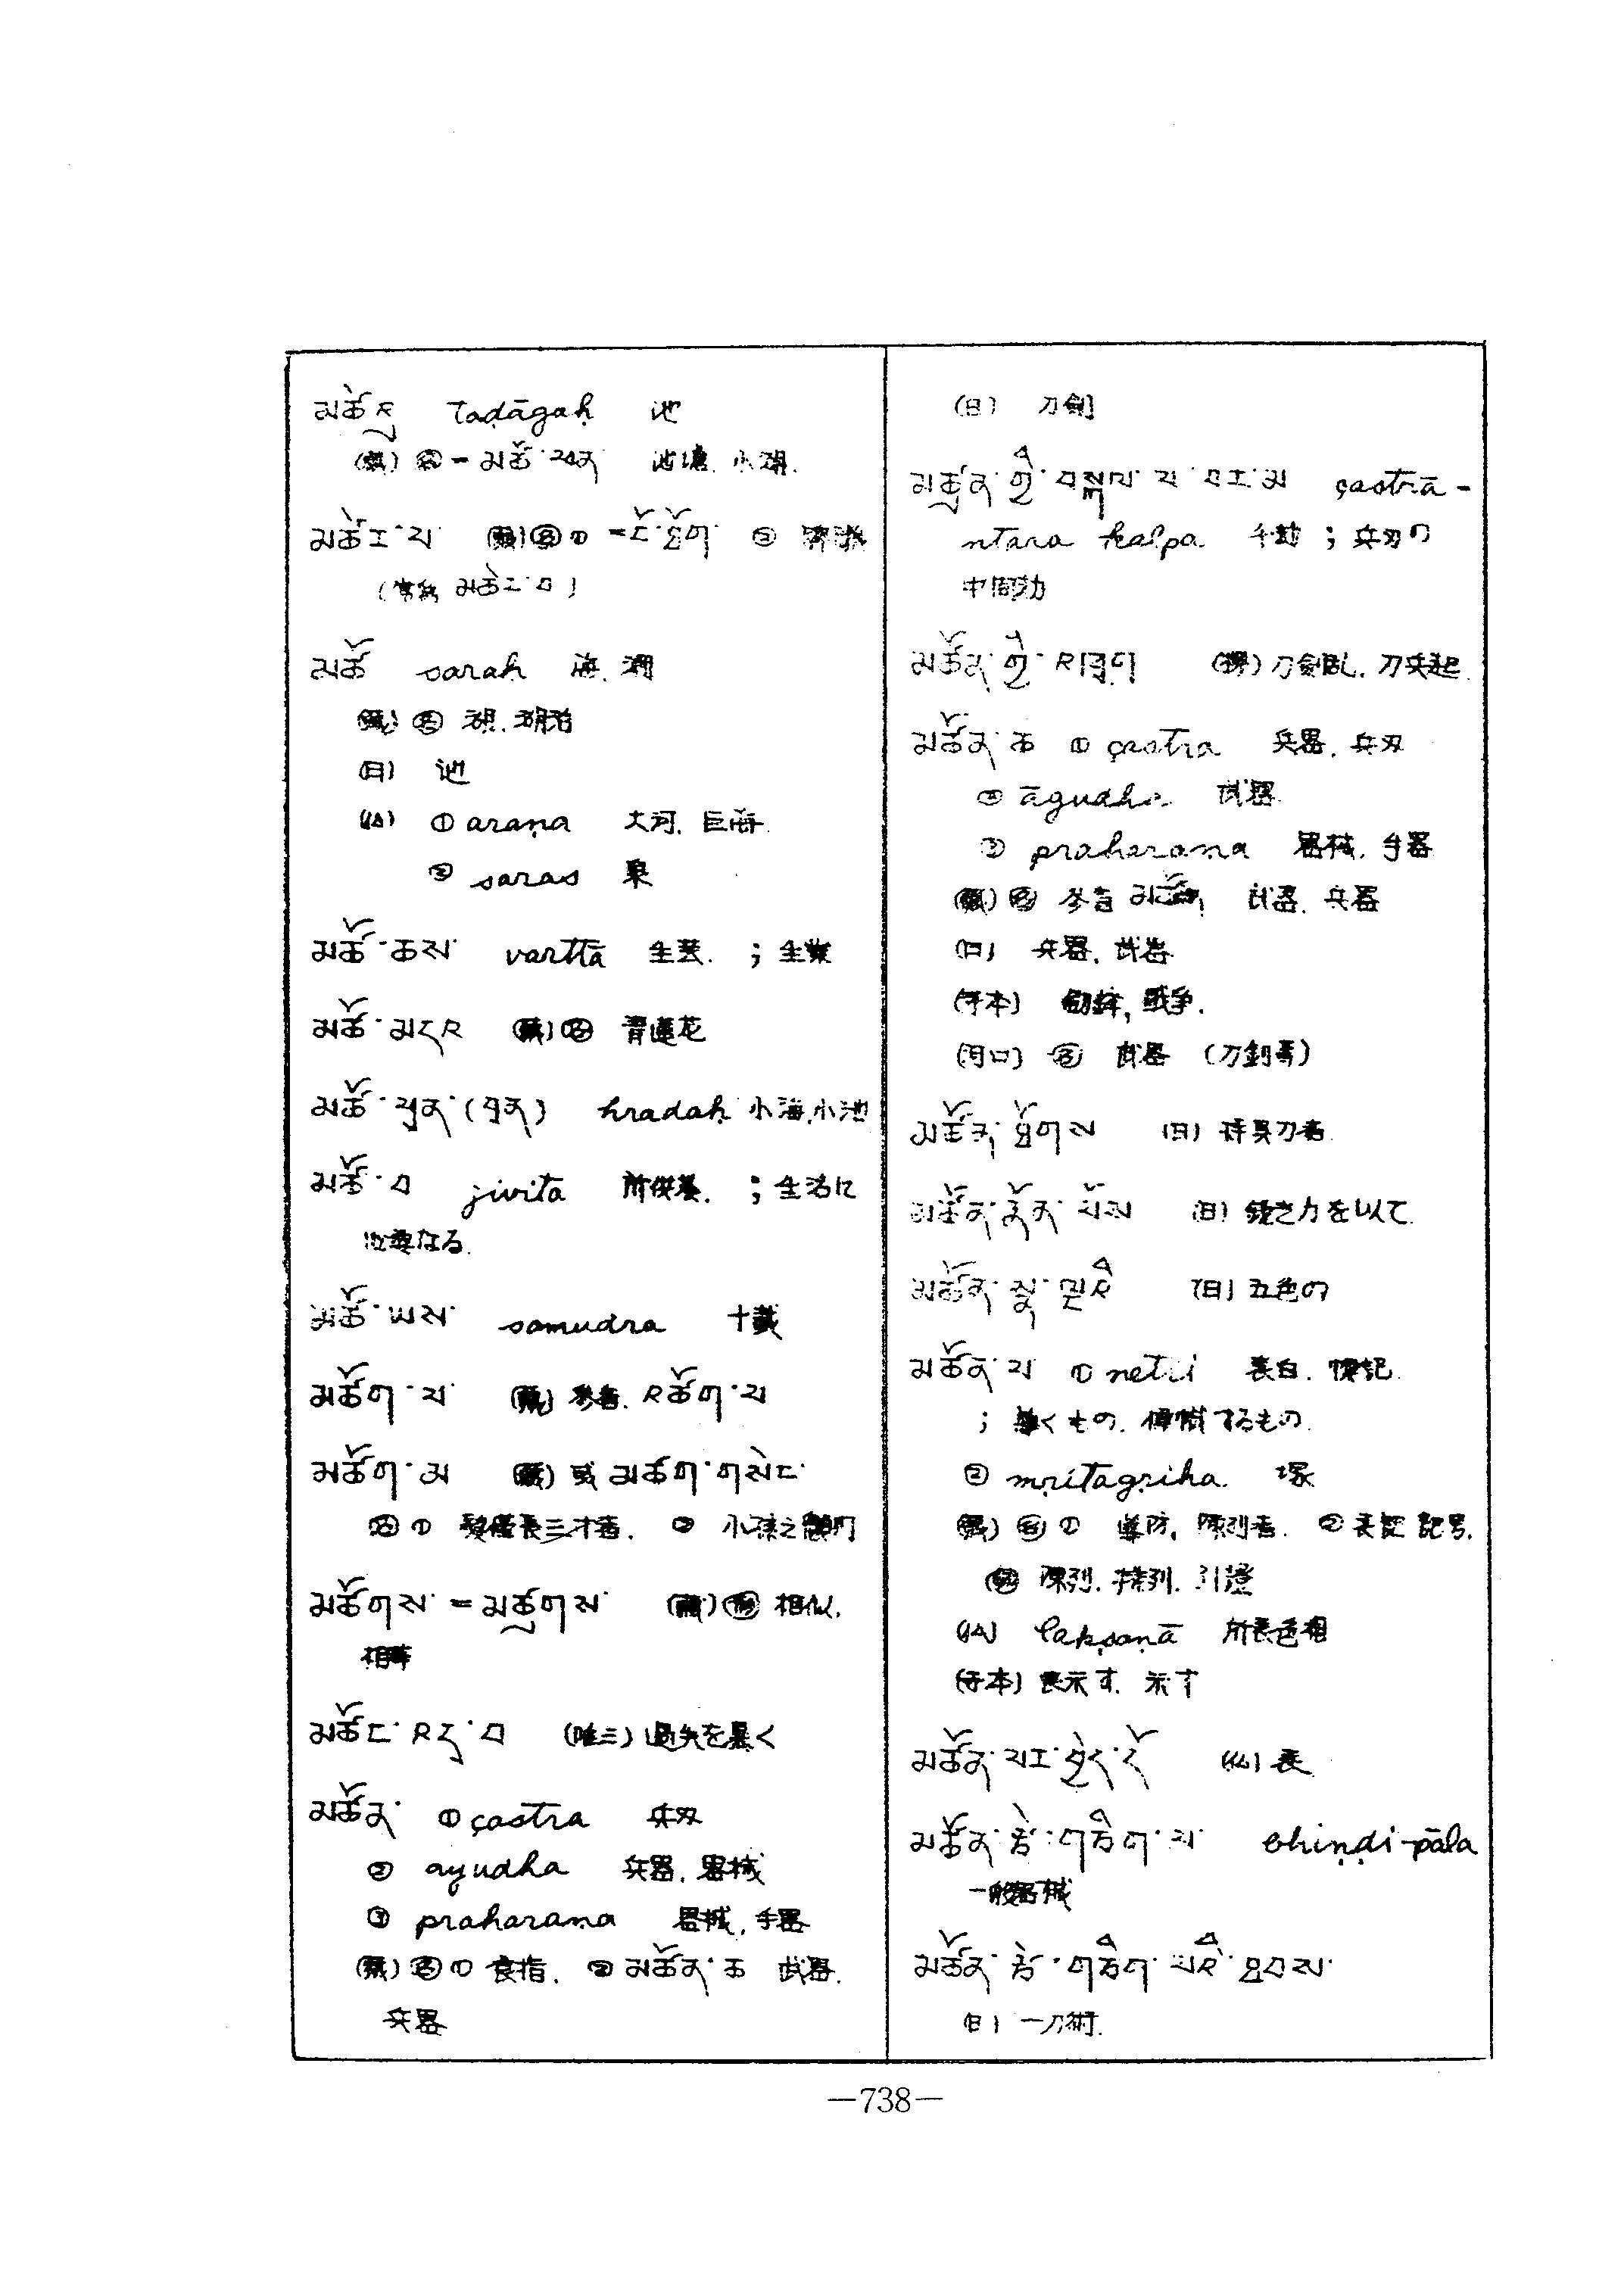 taḍāgaḥ 池
(藏) 名 = མཚོ་ཕྲན 池塘, 小湖.
མཚེར་པ (藏) 名 ① = ངོ་ཚོག ②
(常為 མཚེར་བ)
མཚོ sarah 海, 湖
(藏) 名 湖, 湖泊
(日) 池
(仏) ① araṇa 大河, 巨海.
② saras 泉
མཚོ་ཆས་ varttā 生芸. ; 生業
མཚོ་མདའ (藏) 名 青蓮花
མཚོ་ཕྲན་ (ཕྲན) hradaḥ 小海, 小池
མཚོ་བ jivita 所供養. ; 生活に
必要なる.
མཚོ་ཡས་ samudra 十載
མཚོག་པ་ (藏) 参看. འཚོག་པ
མཚོག་མ (藏) 或 མཚོག་གསེང་
名 ① 髮僅長三寸者. ② 小孩之顖門
མཚོགས་ = མཚུགས་ (藏) 形 相似,
相等
མཚོང་འདྲུ་བ (唯三) 過失を暴く
མཚོན་ ① çastra 兵刃
② ayudha 兵器, 器械
③ praharaṇa 器械, 手器
(藏) 名 ① 食指. ② མཚོན་ཆ 武器.
兵器
(日) 刀劍
མཚོན་གྱི་བསྐལ་པ་བར་མ çastrā-
ntara kalpa 千劫 ; 兵刃の
中間劫
མཚོན་གྱི་འཁྲུག 刀劍乱. 刀兵起.
མཚོན་ཆ ① çastra 兵器, 兵刃
② āyudha 武器
③ praharaṇa 器械, 手器
(藏) 名 参看 མཚོན 武器, 兵器
(日) 兵器, 武器
(寺本) 戰爭.
(河口) 名 武器 (刀劍等)
མཚོན་ཐོགས (日) 持具刀者.
མཚོན་རྣོན་པོས (日) 鋭き力を以て.
མཚོན་སྣ་ལྔའི (日) 五色の
མཚོན་པ ① netri 表白. 標記.
; 導くもの. 標幟するもの.
② mṛitagṛiha. 塚
(藏) 名 ① 導師, 陳列者. ② 表記 記号.
動 陳列. 排列. 引證
(仏) lakṣaṇā 所表色相
(寺本) 表示す. 示す
མཚོན་པར་བྱེད་དོ (仏) 表
མཚོན་རྩེ་གཅིག་པ་ bhiṇḍi-pāla
一般器械
མཚོན་རྩེ་གཅིག་པའི་ཐབས་
(日) 一刀術.
—738—